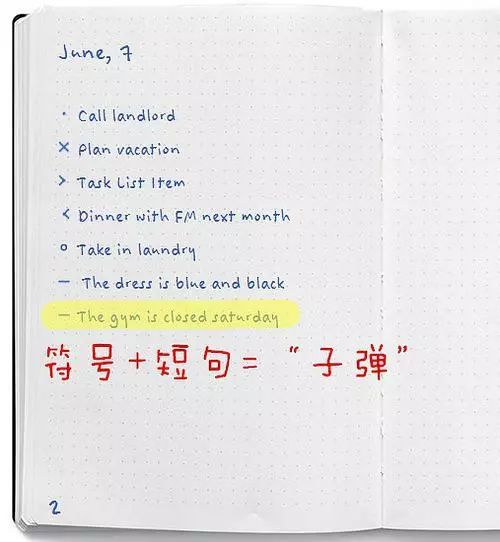 June, 7
· Call landlord
× Plan vacation
> Task List Item
< Dinner with FM next month
o Take in laundry
– The dress is blue and black
– The gym is closed saturday
符号+短句="子弹"
2